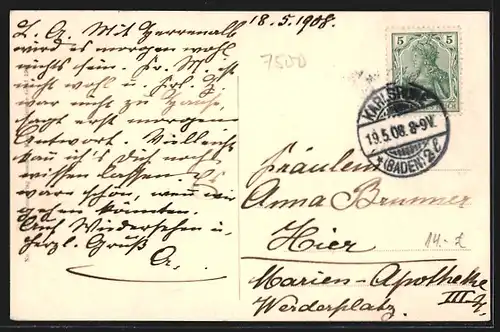 18.5.1908.
L. A. Mit Herrenalb
wird es morgen wohl
nichts sein. Fr. M. ist
nicht wohl u. Frl. S.
war nicht zu Hause,
sagt erst morgen
Antwort. Vielleicht
kann ich's dir noch
wissen lassen. Es
wäre schön, wenn wir
gehen könnten.
Auf Wiedersehen u.
herzl. Gruß
A.
7500
5 5
KARLSRUHE
19.5.08. 8-9V.
*(BADEN) 2
Fräulein
Anna Brunner
Hier
14.-
Marien-Apotheke
III.
Werderplatz.